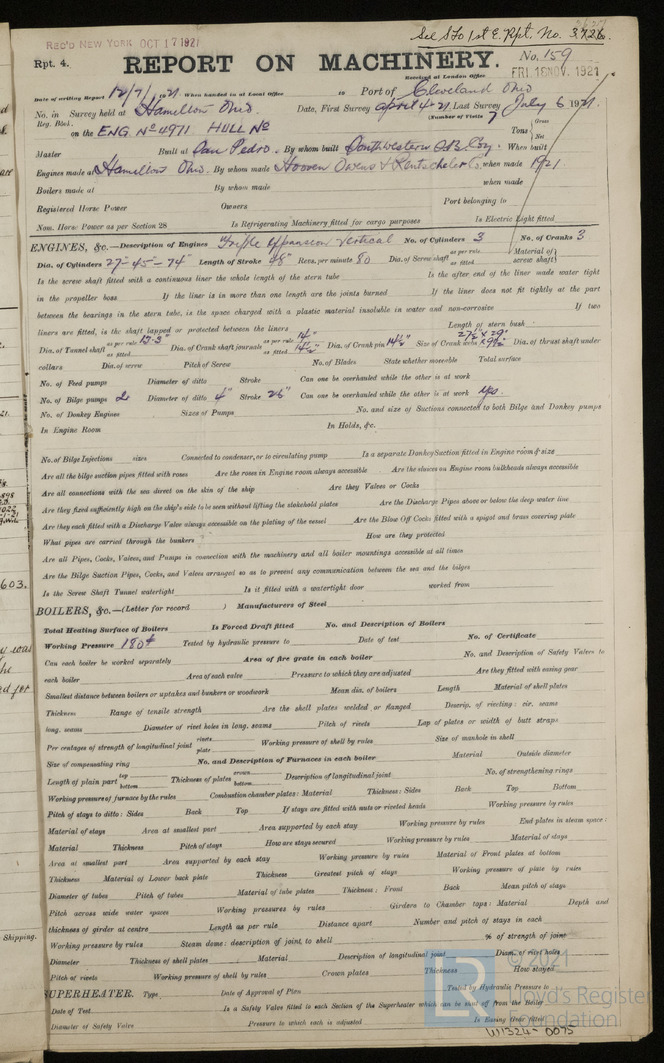 See SFO 1st E. Rpt. No. 3726.
REC'D NEW YORK OCT 17 1921
Rpt. 4.
REPORT ON MACHINERY.
No. 159
Received at London Office
FRI. 18 NOV. 1921
Date of writing Report 12/7/1921. When handed in at Local Office is Port of Cleveland Ohio
No. in Survey held at Hamilton Ohio. Date, First Survey April 4-21. Last Survey July 6 1921.
Reg. Book. (Number of Visits 7
on the ENG Nº 4971 HULL Nº Tons Gross Net
Master Built at San Pedro. By whom built Southwestern S.B. Coy. When built
Engines made at Hamilton Ohio. By whom made Hooven Owens & Rentscheler Co. when made 1921
Boilers made at By whom made when made
Registered Horse Power Owners Port belonging to
Nom. Horse Power as per Section 28 Is Refrigerating Machinery fitted for cargo purposes Is Electric Light fitted
ENGINES, &c.—Description of Engines Triple Expansion Vertical No. of Cylinders 3 No. of Cranks 3
Dia. of Cylinders 27-45-74" Length of Stroke 48" Revs. per minute 80 Dia. of Screw shaft as per rule as fitted Material of screw shaft
Is the screw shaft fitted with a continuous liner the whole length of the stern tube Is the after end of the liner made water tight
in the propeller boss If the liner is in more than one length are the joints burned If the liner does not fit tightly at the part
between the bearings in the stern tube, is the space charged with a plastic material insoluble in water and non-corrosive If two
liners are fitted, is the shaft lapped or protected between the liners Length of stern bush
Dia. of Tunnel shaft as per rule 13.3" as fitted Dia. of Crank shaft journals as per rule 14" as fitted 14½" Dia. of Crank pin 14½" Size of Crank webs 27½" x 29" x 9½" Dia. of thrust shaft under
collars Dia. of screw Pitch of Screw No. of Blades State whether moveable Total surface
No. of Feed pumps Diameter of ditto Stroke Can one be overhauled while the other is at work
No. of Bilge pumps 2 Diameter of ditto 4" Stroke 26" Can one be overhauled while the other is at work yes.
No. of Donkey Engines Sizes of Pumps No. and size of Suctions connected to both Bilge and Donkey pumps
In Engine Room In Holds, &c.
No. of Bilge Injections sizes Connected to condenser, or to circulating pump Is a separate Donkey Suction fitted in Engine room & size
Are all the bilge suction pipes fitted with roses Are the roses in Engine room always accessible Are the sluices on Engine room bulkheads always accessible
Are all connections with the sea direct on the skin of the ship Are they Valves or Cocks
Are they fixed sufficiently high on the ship's side to be seen without lifting the stokehold plates Are the Discharge Pipes above or below the deep water line
Are they each fitted with a Discharge Valve always accessible on the plating of the vessel Are the Blow Off Cocks fitted with a spigot and brass covering plate
What pipes are carried through the bunkers How are they protected
Are all Pipes, Cocks, Valves, and Pumps in connection with the machinery and all boiler mountings accessible at all times
Are the Bilge Suction Pipes, Cocks, and Valves arranged so as to prevent any communication between the sea and the bilges
Is the Screw Shaft Tunnel watertight Is it fitted with a watertight door worked from
BOILERS, &c.—(Letter for record ) Manufacturers of Steel
Total Heating Surface of Boilers Is Forced Draft fitted No. and Description of Boilers
Working Pressure 180# Tested by hydraulic pressure to Date of test No. of Certificate
Can each boiler be worked separately Area of fire grate in each boiler No. and Description of Safety Valves to
each boiler Area of each valve Pressure to which they are adjusted Are they fitted with easing gear
Smallest distance between boilers or uptakes and bunkers or woodwork Mean dia. of boilers Length Material of shell plates
Thickness Range of tensile strength Are the shell plates welded or flanged Descrip. of riveting: cir. seams
long. seams Diameter of rivet holes in long. seams Pitch of rivets Lap of plates or width of butt straps
Per centages of strength of longitudinal joint rivets plate Working pressure of shell by rules Size of manhole in shell
Size of compensating ring No. and Description of Furnaces in each boiler Material Outside diameter
Length of plain part top bottom Thickness of plates crown bottom Description of longitudinal joint No. of strengthening rings
Working pressure of furnace by the rules Combustion chamber plates: Material Thickness: Sides Back Top Bottom
Pitch of stays to ditto: Sides Back Top If stays are fitted with nuts or riveted heads Working pressure by rules
Material of stays Area at smallest part Area supported by each stay Working pressure by rules End plates in steam space:
Material Thickness Pitch of stays How are stays secured Working pressure by rules Material of stays
Area at smallest part Area supported by each stay Working pressure by rules Material of Front plates at bottom
Thickness Material of Lower back plate Thickness Greatest pitch of stays Working pressure of plate by rules
Diameter of tubes Pitch of tubes Material of tube plates Thickness: Front Back Mean pitch of stays
Pitch across wide water spaces Working pressures by rules Girders to Chamber tops: Material Depth and
thickness of girder at centre Length as per rule Distance apart Number and pitch of stays in each
Working pressure by rules Steam dome: description of joint to shell % of strength of joint
Diameter Thickness of shell plates Material Description of longitudinal joint Diam. of rivet holes
Pitch of rivets Working pressure of shell by rules Crown plates Thickness How stayed
SUPERHEATER. Type Date of Approval of Plan Tested by Hydraulic Pressure to
Date of Test Is a Safety Valve fitted to each Section of the Superheater which can be shut off from the Boiler
Diameter of Safety Valve Pressure to which each is adjusted Is Easing Gear fitted
Shipping.
© 2021
Lloyd's Register
Foundation
W1324-0075